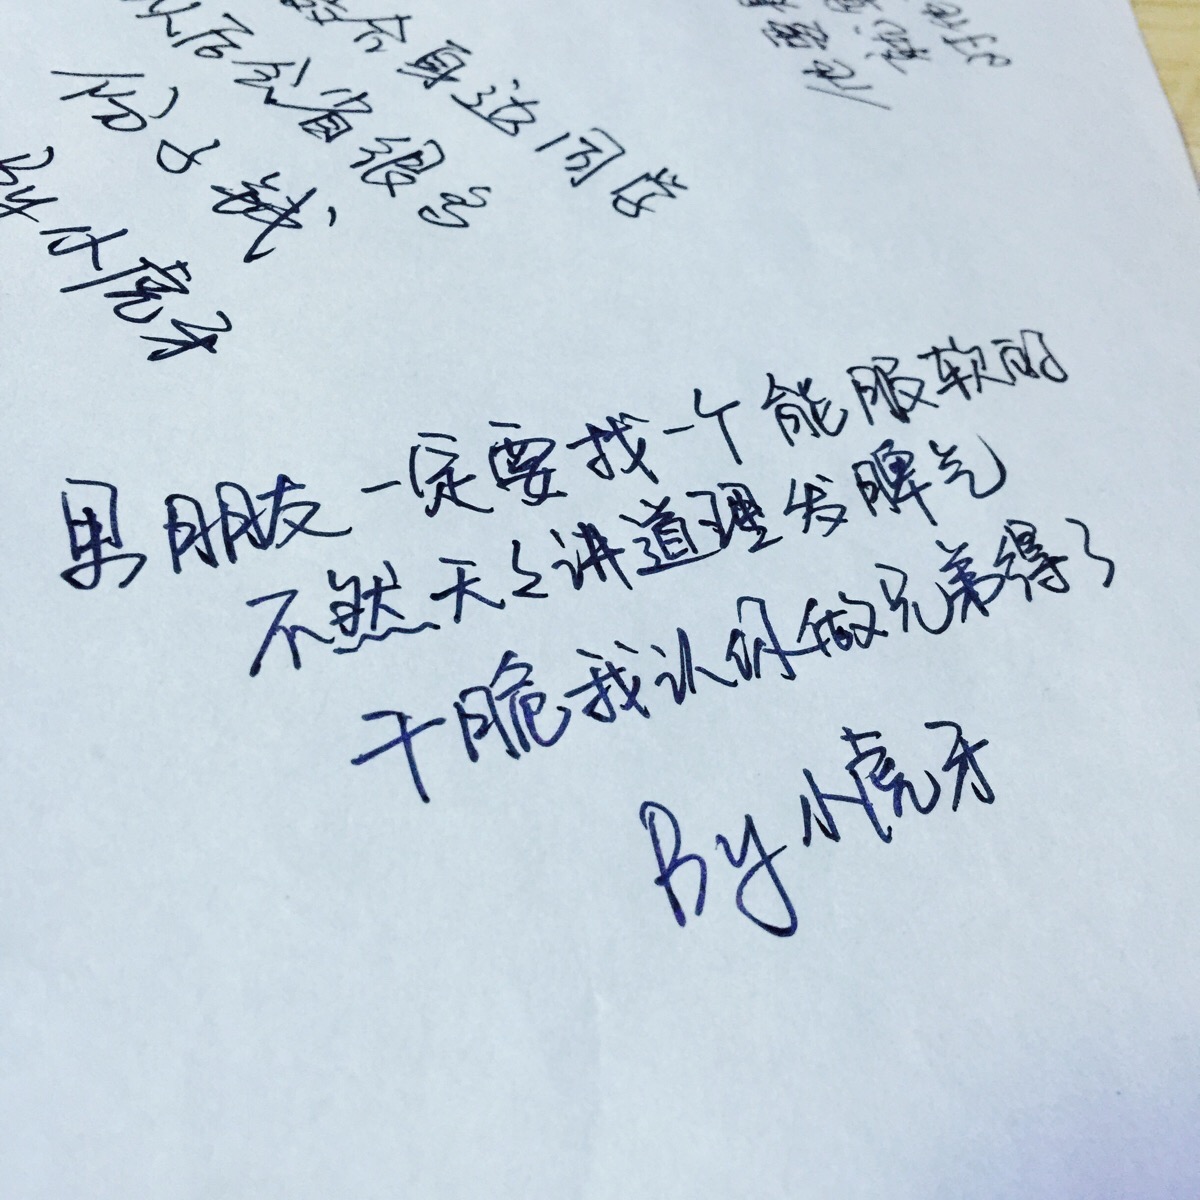 余身边同学
以后会省很多
份子钱,
By 小虎牙
男朋友一定要找一个能服软的
不然天天讲道理发脾气
干脆我认你做兄弟得了
By 小虎牙